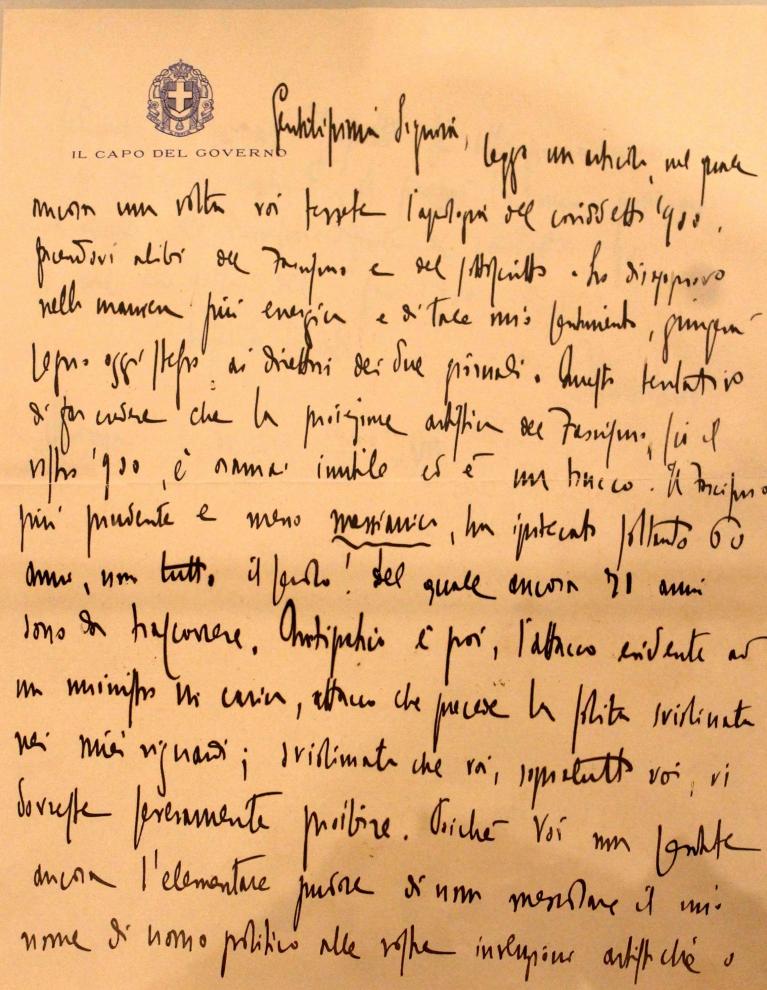 IL CAPO DEL GOVERNO
Gentilissima Signora,
leggo un articolo, nel quale
ancora una volta voi tessete l'apologia del cosidetto '900,
facendovi alibi del Fascismo e del sottoscritto. Lo disapprovo
nella maniera più energica e di tale mio sentimento, giungerà
segno oggi stesso, ai direttori dei due giornali. Questo tentativo
di far credere che la proiezione artistica del Fascismo, sia il
vostro '900, è oramai inutile ed è un trucco. Il Fascismo
più prudente e meno messianico, ha ipotecato soltanto 60
anni, non tutto il secolo! del quale ancora 71 anni
sono da trascorrere. Antipatico è poi, l'attacco evidente ad
un ministro in carica, attacco che precede la solita sviolinata
nei miei riguardi; sviolinata che voi, sopratutto voi, vi
dovreste severamente proibire. Poiché Voi non sentite
ancora l'elementare pudore di non mescolare il mio
nome di uomo politico alle vostre invenzioni artistiche o